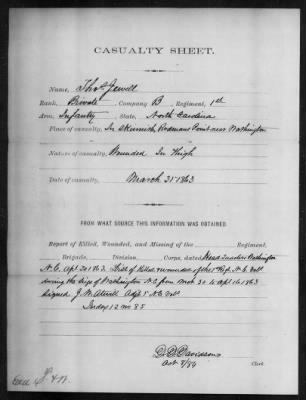 CASUALTY SHEET.
Name, Thos Jewell
Rank, Private Company B, Regiment, 1st
Arm, Infantry, State, North Carolina
Place of casualty, In Skirmish Rodmans Point near Washington
Nature of casualty, Wounded In Thigh
Date of casualty, March 31 1863
FROM WHAT SOURCE THIS INFORMATION WAS OBTAINED.
Report of Killed, Wounded, and Missing of the Regiment,
Brigade, Division, Corps, dated Head Quarters Washington
N.C. Apl 20 1863. List of Killed wounded of the 1st Regt N.C. Vols
during the siege of Washington N.C from Mch 30 to Apl 16 1863
Signed J. W. Adj 1 N.C. Vols
12 85
Davidson
Clerk.
Oct 8/86